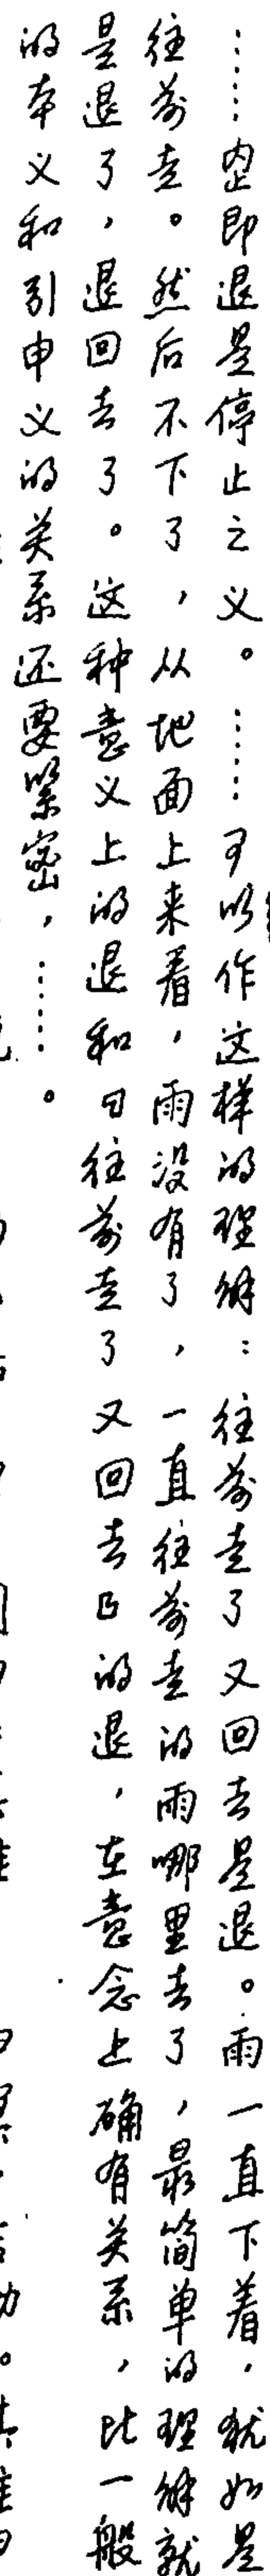 ……㱏即退是停止之义。……可以作这样的理解：往前走了又回去是退。雨一直下着，犹如是
往前走。然后不下了，从地面上来看，雨没有了，一直往前走的雨哪里去了，最简单的理解就
是退了，退回去了。这种意义上的退和“往前走了又回去”的退，在意念上确有关系，比一般
的本义和引申义的关系还要紧密，……。